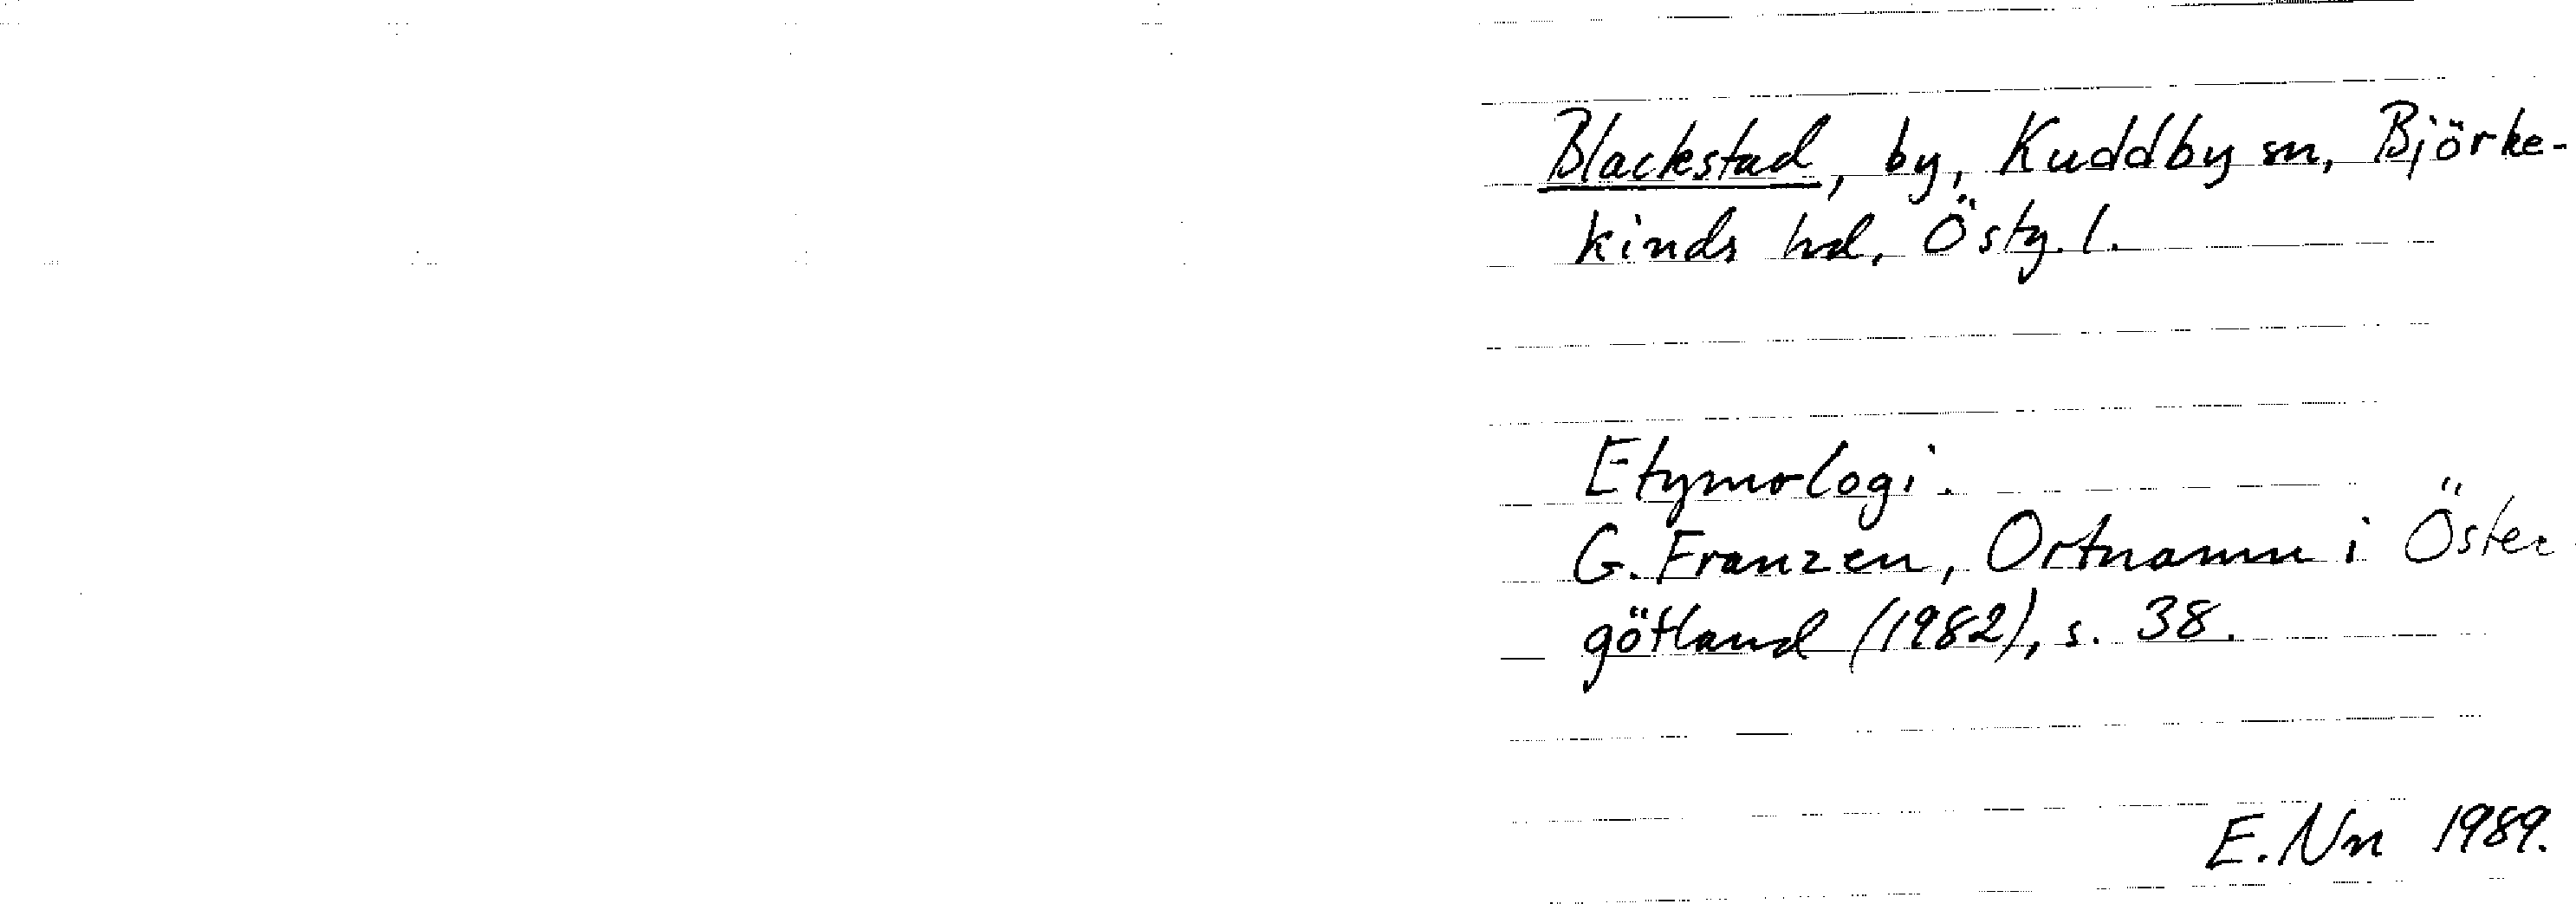 Blackstad, by, Kuddby sn, Björke-
kinds hd, Östg. l.
Etymologi.
G. Franzen, Ortnamn i Öster-
götland (1982), s. 38.
E. Nn 1989.